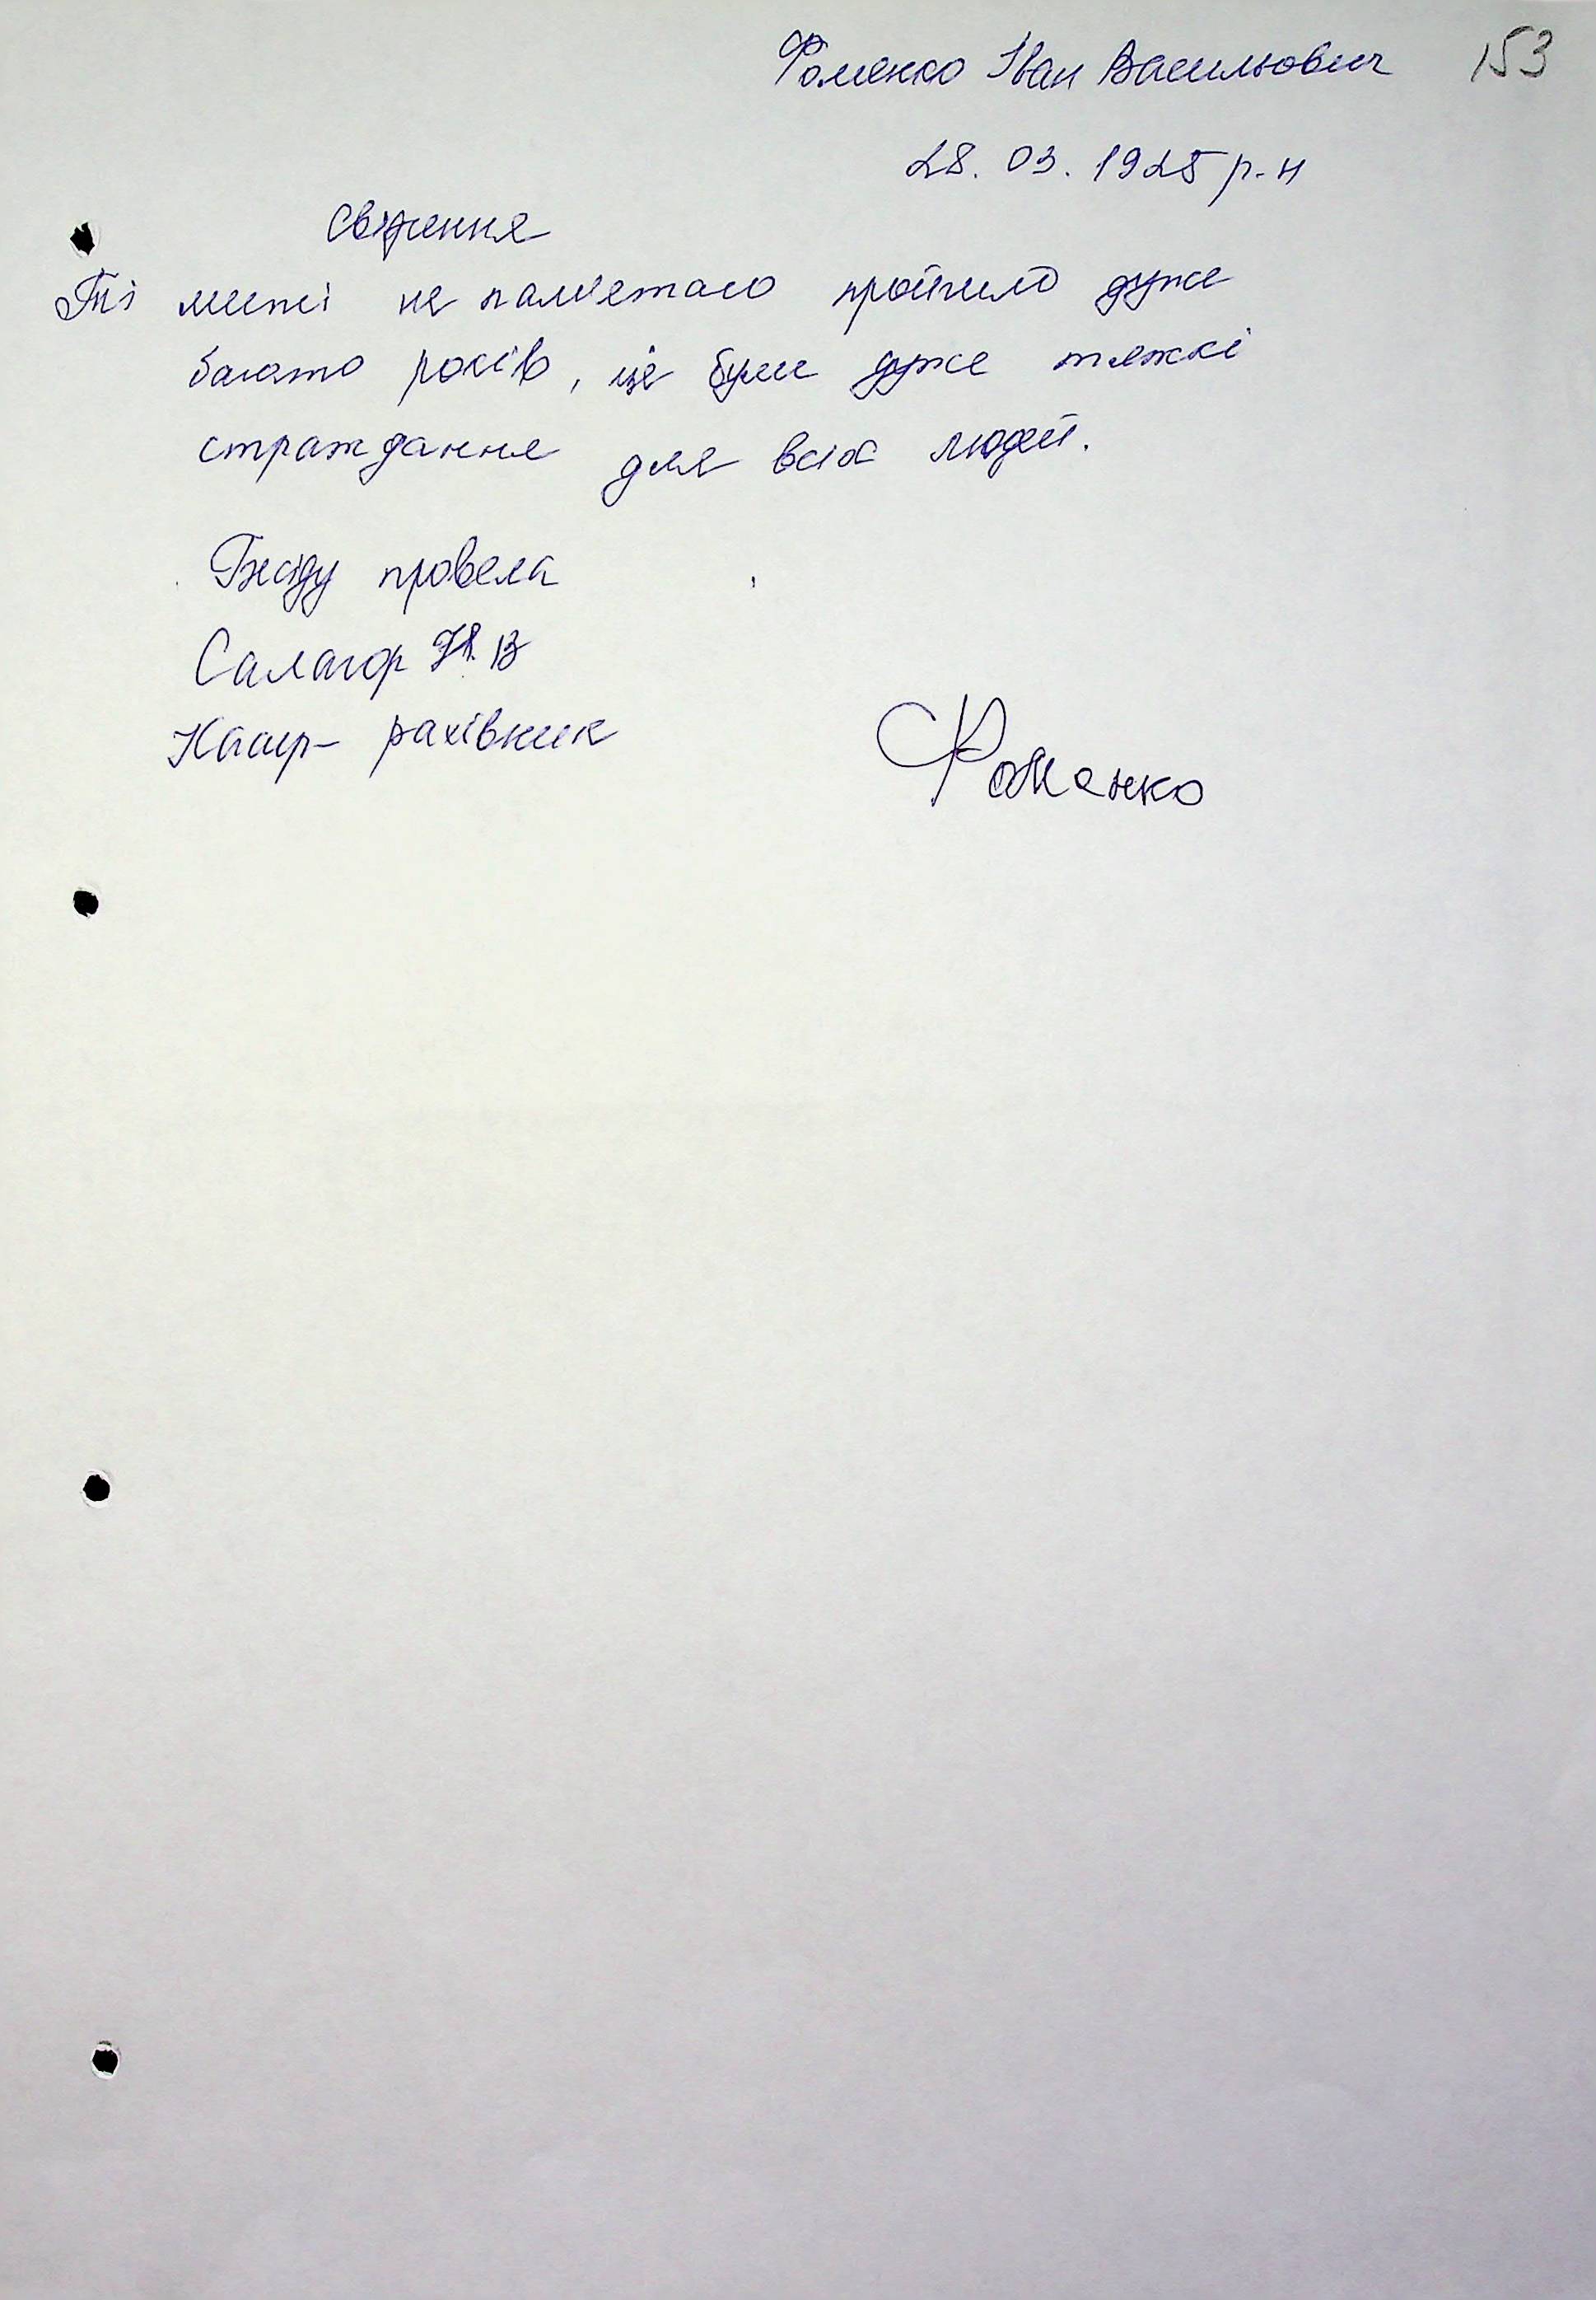 Фоменко Іван Васильович 153
28. 03. 1925 р. н
свідчення
Ті миті не пам'ятаю пройшло дуже
багато років, це були дуже тяжкі
страждання для всіх людей.
Бесіду провела
Салагор Н. В
Касир - рахівник
Фоменко